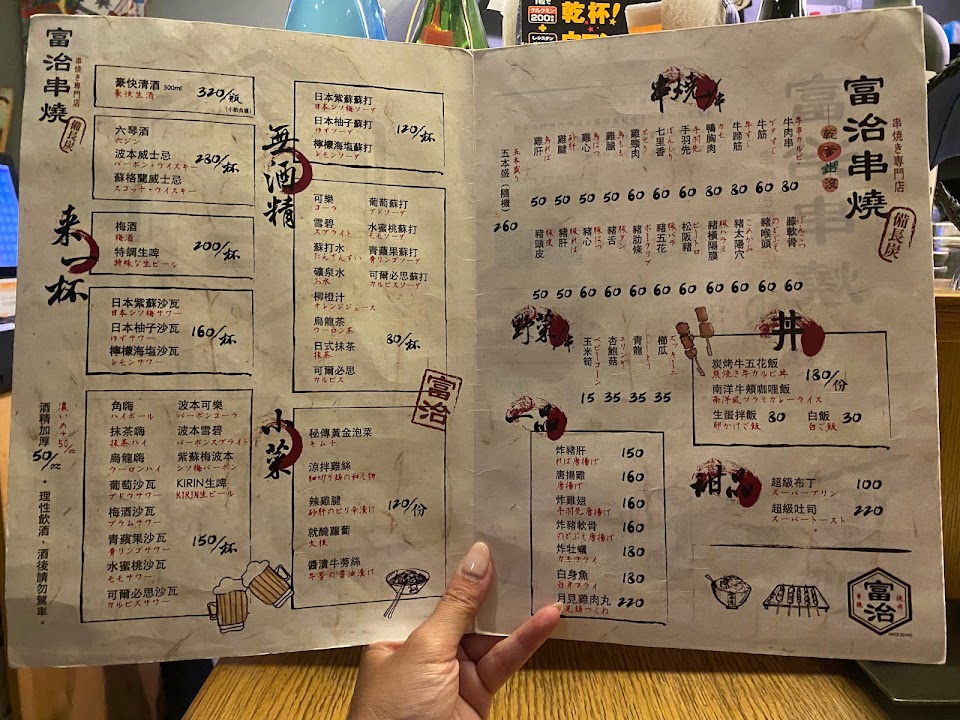 富治串燒
串燒き專門店
備長炭
豪快清酒 300ml 320/瓶
豪快生酒
六琴酒
六ジン
波本威士忌 280/杯
バーボン・ウイスキー
蘇格蘭威士忌
スコッチ・ウイスキー
来一杯
梅酒
梅酒
特調生啤 200/杯
特殊な生ビール
日本紫蘇沙瓦
日本シソ梅サワー
日本柚子沙瓦 160/杯
ゆずサワー
檸檬海塩沙瓦
レモンサワー
角嗨
ハイボール
抹茶嗨
抹茶ハイ
烏龍嗨
ウーロンハイ
葡萄沙瓦
ブドウサワー
梅酒沙瓦
プラムサワー
青蘋果沙瓦
青リンゴサワー
水蜜桃沙瓦
モモサワー
可爾必思沙瓦
カルピスサワー
波本可樂
バーボンコーラ
波本雪碧
バーボンスプライト
紫蘇梅波本
シソ梅バーボン
KIRIN生啤
KIRIN生ビール
150/杯
濃いめ 50/oz
酒精加厚 50/oz
・理性飲酒・酒後請勿駕車。
無酒精
日本紫蘇蘇打
日本シソ梅ソーダ
日本柚子蘇打 120/杯
ゆずソーダ
檸檬海塩蘇打
レモンソーダ
可樂
コーラ
雪碧
スプライト
蘇打水
たんさんすい
礦泉水
お水
柳橙汁
オレンジジュース
烏龍茶
ウーロン茶
日式抹茶
抹茶
可爾必思
カルピス
葡萄蘇打
ブドソーダ
水蜜桃蘇打
モモソーダ
青蘋果蘇打
青リンゴソーダ
可爾必思蘇打
カルピスソーダ
80/杯
富治
小菜
秘傳黃金泡菜
キムチ
涼拌雞絲
細切り鶏の和え物
辣雞腱 120/份
砂肝のピリ辛漬け
就醃蘿蔔
大根
醬漬牛蒡絲
牛蒡の醤油漬け
富治串燒
串燒き專門店
備長炭
串燒
牛肉串 80
牛筋 60
牛蹄筋 80
鴨胸肉 80
手羽先 60
七里香 60
雞頸肉 60
雞腿 60
雞心 50
雞腱 50
雞肝 50
五本盛(隨機) 260
藤軟骨 60
豬喉頭 60
豬太陽穴 60
豬橫隔膜 60
松阪豬 60
豬五花 60
豬肋條 60
豬舌 60
豬心 60
豬肝 50
豬頭皮 50
野菜
櫛瓜 35
ズッキーニ
青龍 35
杏鮑菇 35
エリンギ
玉米筍 15
ベビーコーン
丼
炭烤牛五花飯
炭焼き牛カルビ丼
南洋牛頰咖哩飯 180/份
南洋風ツラミカレーライス
生蛋拌飯 80
卵かけご飯
白飯 30
白ご飯
一品
炸豬肝 150
れば唐揚げ
唐揚雞 160
唐揚げ
炸雞翅 160
手羽先唐揚げ
炸豬軟骨 160
のどぶえ唐揚げ
炸牡蠣 180
カキフライ
白身魚 180
白身フライ
月見雞肉丸 220
月見鶏つくね
甜品
超級布丁 100
スーパープリン
超級吐司 220
スーパートースト
富治